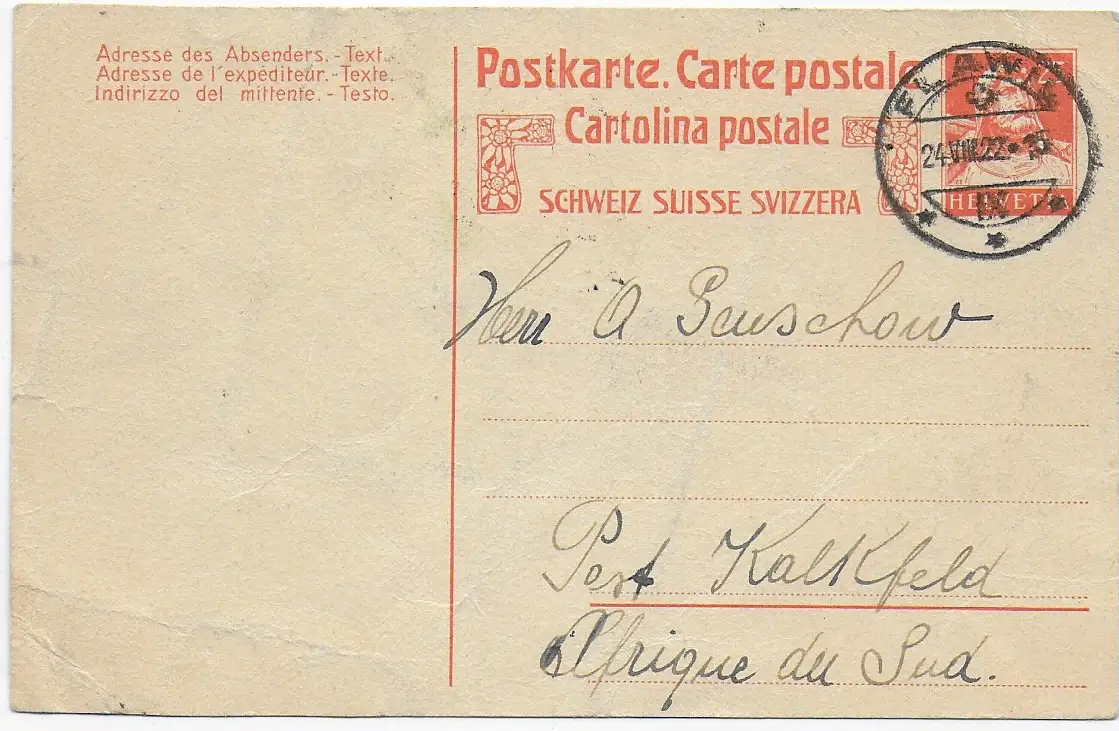 Adresse des Absenders. - Text.
Adresse de l'expéditeur. - Texte.
Indirizzo del mittente. - Testo.
Postkarte. Carte postale
Cartolina postale
SCHWEIZ SUISSE SVIZZERA
25
HELVETIA
FLAWIL
24.VIII.22
IX
Herr A Peuschow
Post Kalkfeld
Afrique du Sud.